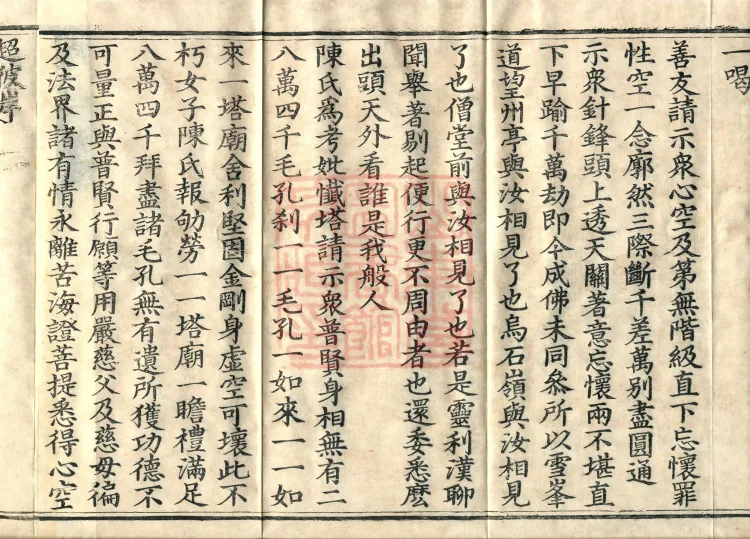 一喝
善友請示衆心空及第無階級直下忘懷罪
性空一念廓然三際斷千差萬別盡圓通
示衆針鋒頭上透天關著意忘懷兩不堪直
下早踰千萬劫即今成佛未同叅所以雪峯
道望州亭與汝相見了也烏石嶺與汝相見
了也僧堂前與汝相見了也若是靈利漢聊
聞舉著剔起便行更不周由者也還委悉麽
出頭天外看誰是我般人
陳氏爲考妣懺塔請示衆普賢身相無有二
八萬四千毛孔刹一一毛孔一如來一一如
來一塔廟舍利堅固金剛身虛空可壞此不
朽女子陳氏報劬勞一一塔廟一瞻禮滿足
八萬四千拜盡諸毛孔無有遺所獲功德不
可量正與普賢行願等用嚴慈父及慈母徧
及法界諸有情永離苦海證菩提悉得心空
超彼岸